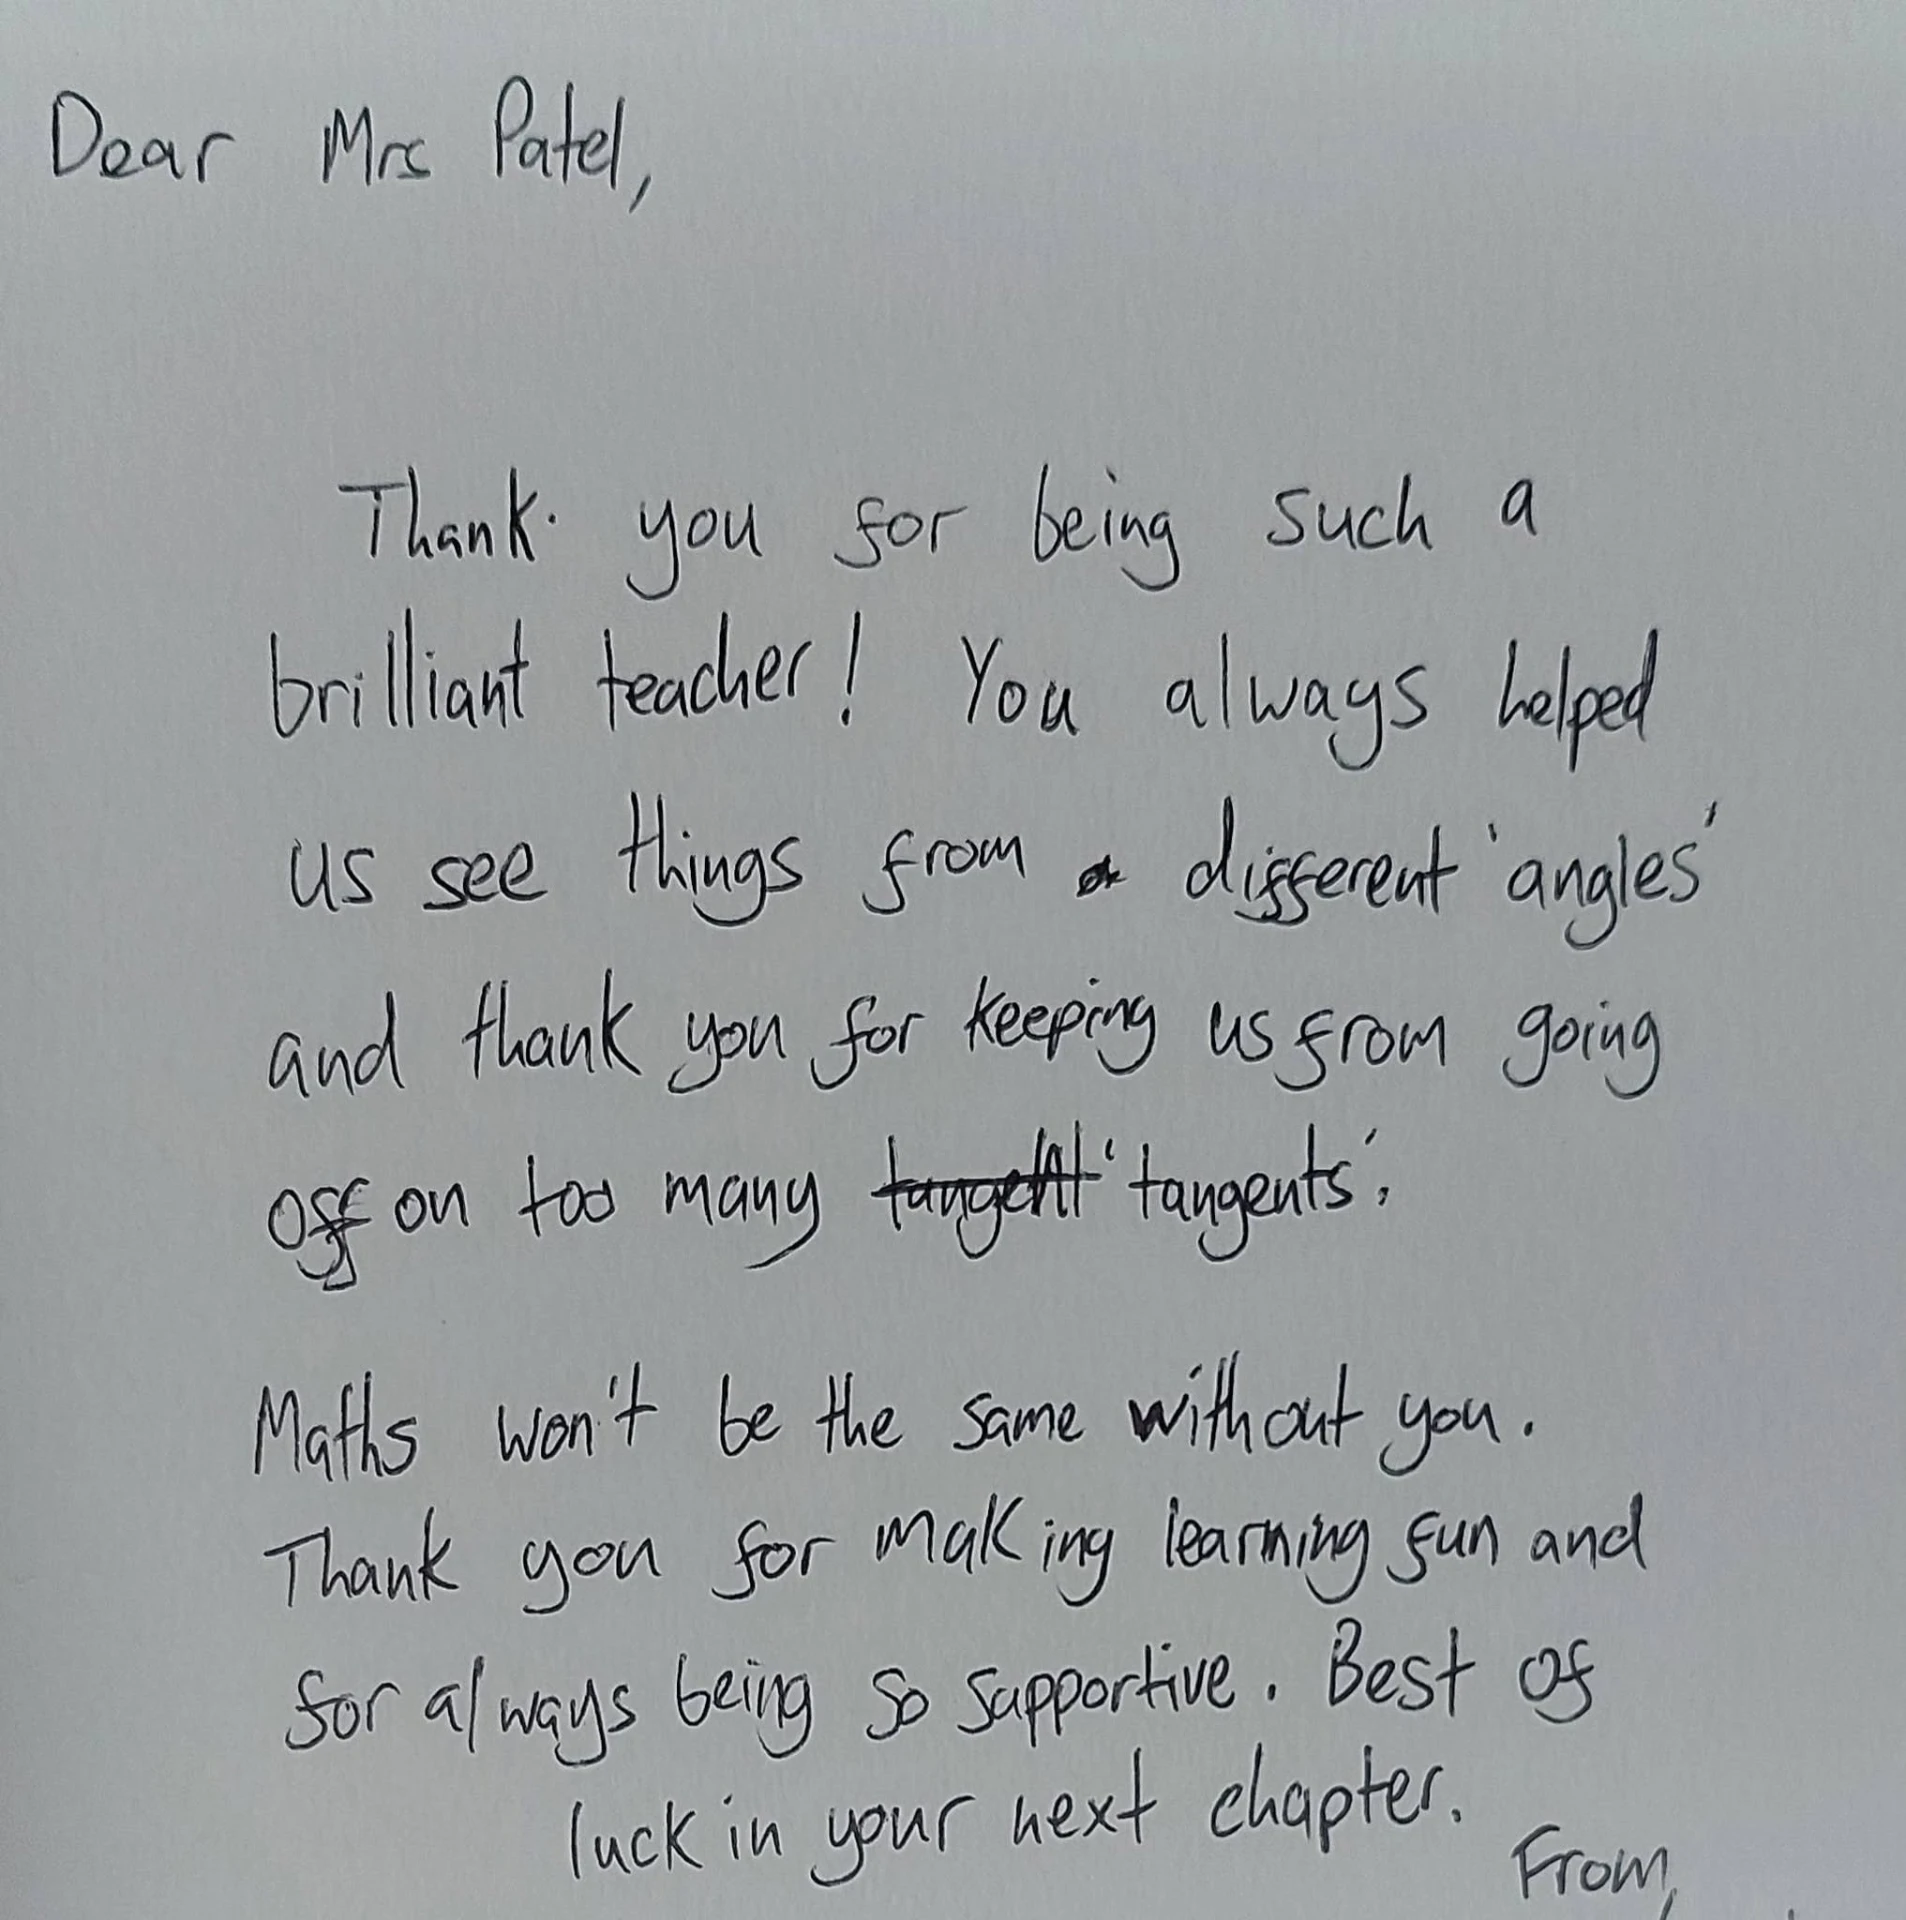 Dear Mrs Patel,
Thank you for being such a
brilliant teacher! You always helped
us see things from different 'angles'
and thank you for keeping us from going
off on too many tangent 'tangents'.
Maths won't be the same without you.
Thank you for making learning fun and
for always being so supportive. Best of
luck in your next chapter.
From,